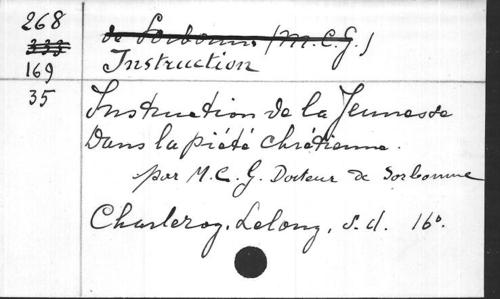 268
333
169
35
de Sorbonne (M.C.G.)
Instruction
Instruction de la Jeunesse
Dans la piété chrétienne.
par M. C. G. Docteur de Sorbonne
Charleroy, Lelong, s.d. 16°.